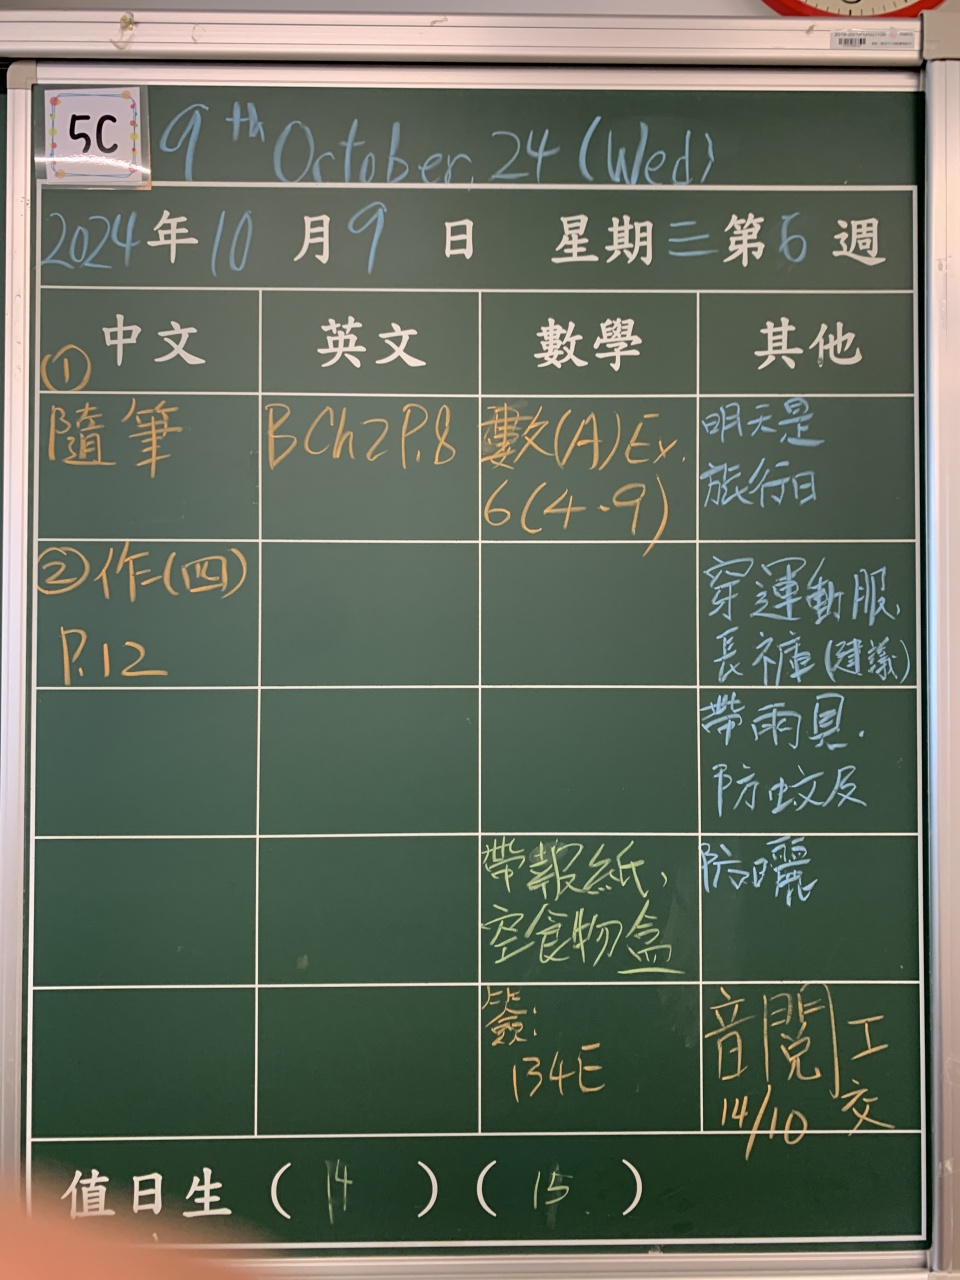 5C
9th October, 24 (Wed)
2024年10月9日 星期三第6週
中文 英文 數學 其他
① 隨筆
BCh2 P.8
數(A)Ex.
6(4-9)
明天是
旅行日
②作(四)
P.12
穿運動服,
長褲(建議)
帶雨具.
防蚊及
防曬
帶報紙,
空食物盒
簽:
134E
音閱工
14/10 交
值日生(14)(15)